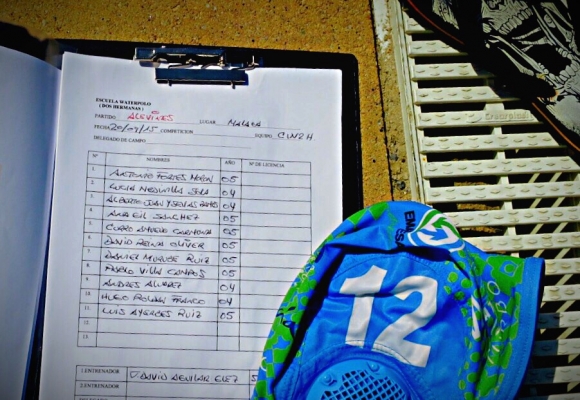 ESCUELA WATERPOLO
( DOS HERMANAS )
PARTIDO ALEVINES LUGAR MALAGA
FECHA 20/07/15 COMPETICION EQUIPO CW2H
DELEGADO DE CAMPO
Nº NOMBRES AÑO Nº DE LICENCIA
1 ANTONIO TORRES MORÓN 05
2 LUCIA 04
3 ALBERTO 04
4 ANA GIL SANCHEZ 05
5 CURRO CARMONA 05
6 DAVID REINA OLIVER 05
7 DANIEL RUIZ 05
8 PABLO VILLA CAMPOS 05
9 ANDRES ALVAREZ 04
10 HUGO ROLDAN FRANCO 04
11 LUIS RUIZ 05
12
13
1 ENTRENADOR DAVID AGUILAR
2 ENTRENADOR
12